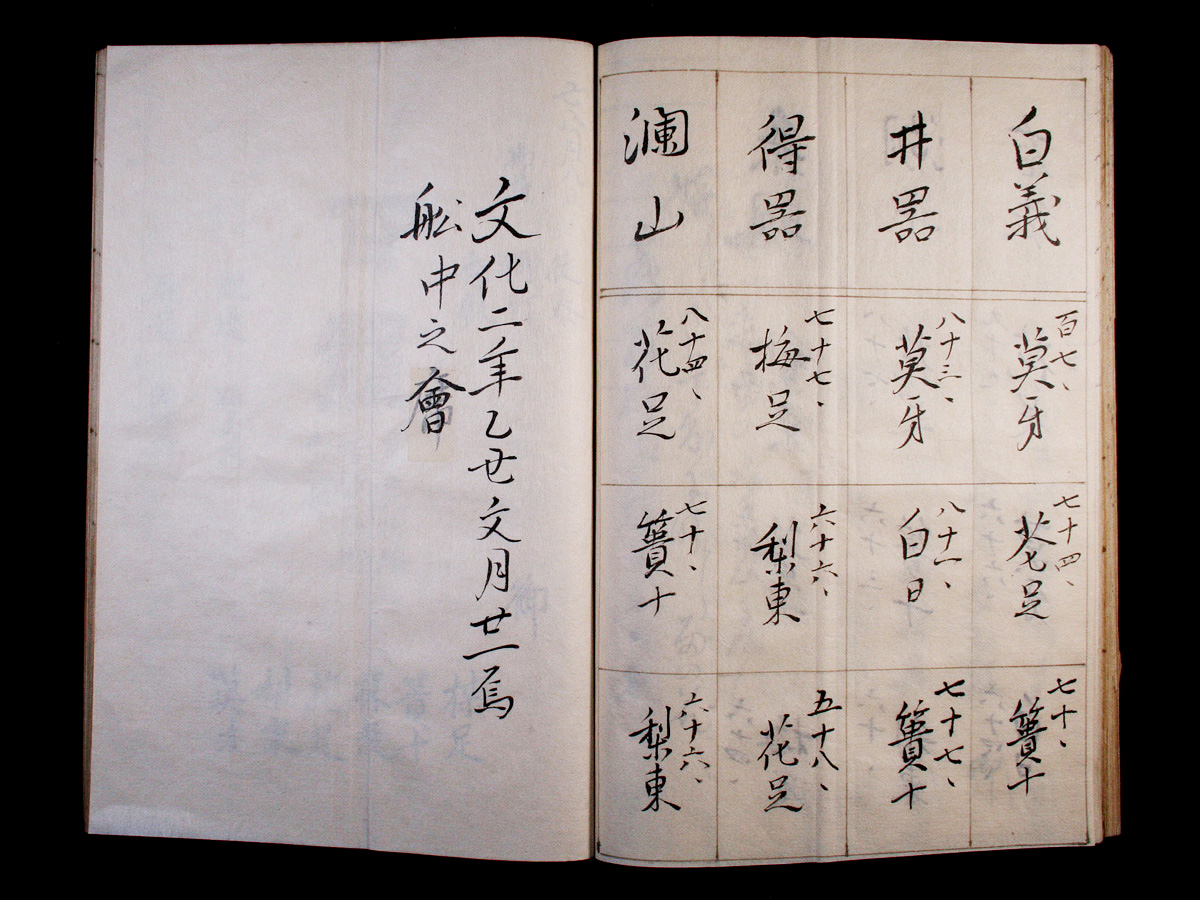 白義
井器
得器
瀾山
百七、
莫牙
八十三、
莫牙
七十七、
梅足
八十四、
花足
七十四、
花足
八十一、
白日
六十六、
梨東
七十、
簣十
七十、
簣十
七十七、
簣十
五十八、
花足
六十六、
梨東
文化二年乙丑文月廿一焉
舩中之會